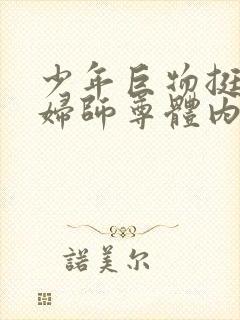 少年巨物挺
婦師尊體內
諾美尔